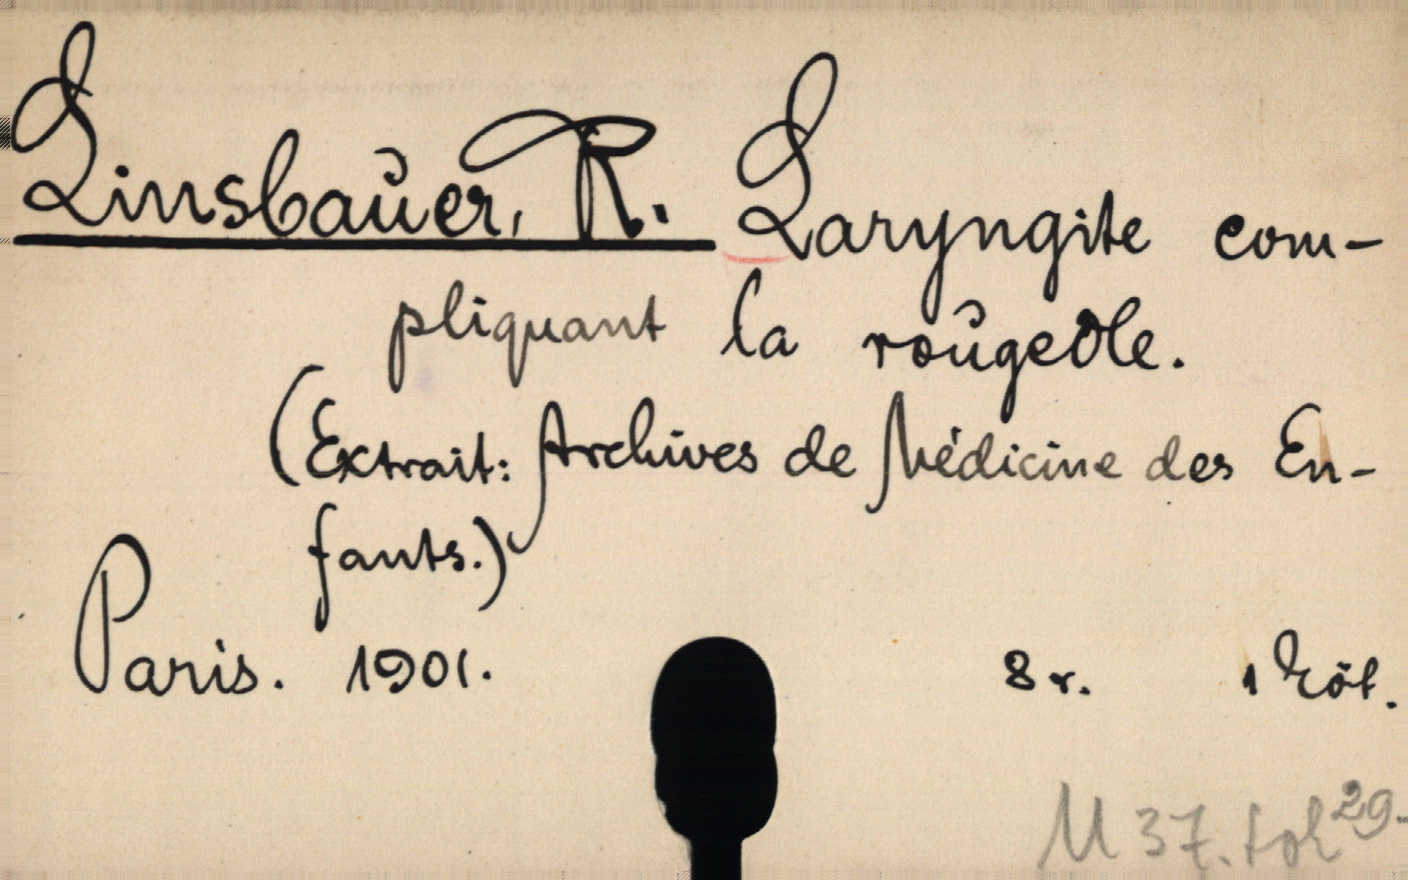 Linsbauer, R. Laryngite com-
pliquant la rougeole.
(Extrait: Archives de Médicine des En-
fants.)
Paris. 1901. 8 r. 1 köt.
M 37.